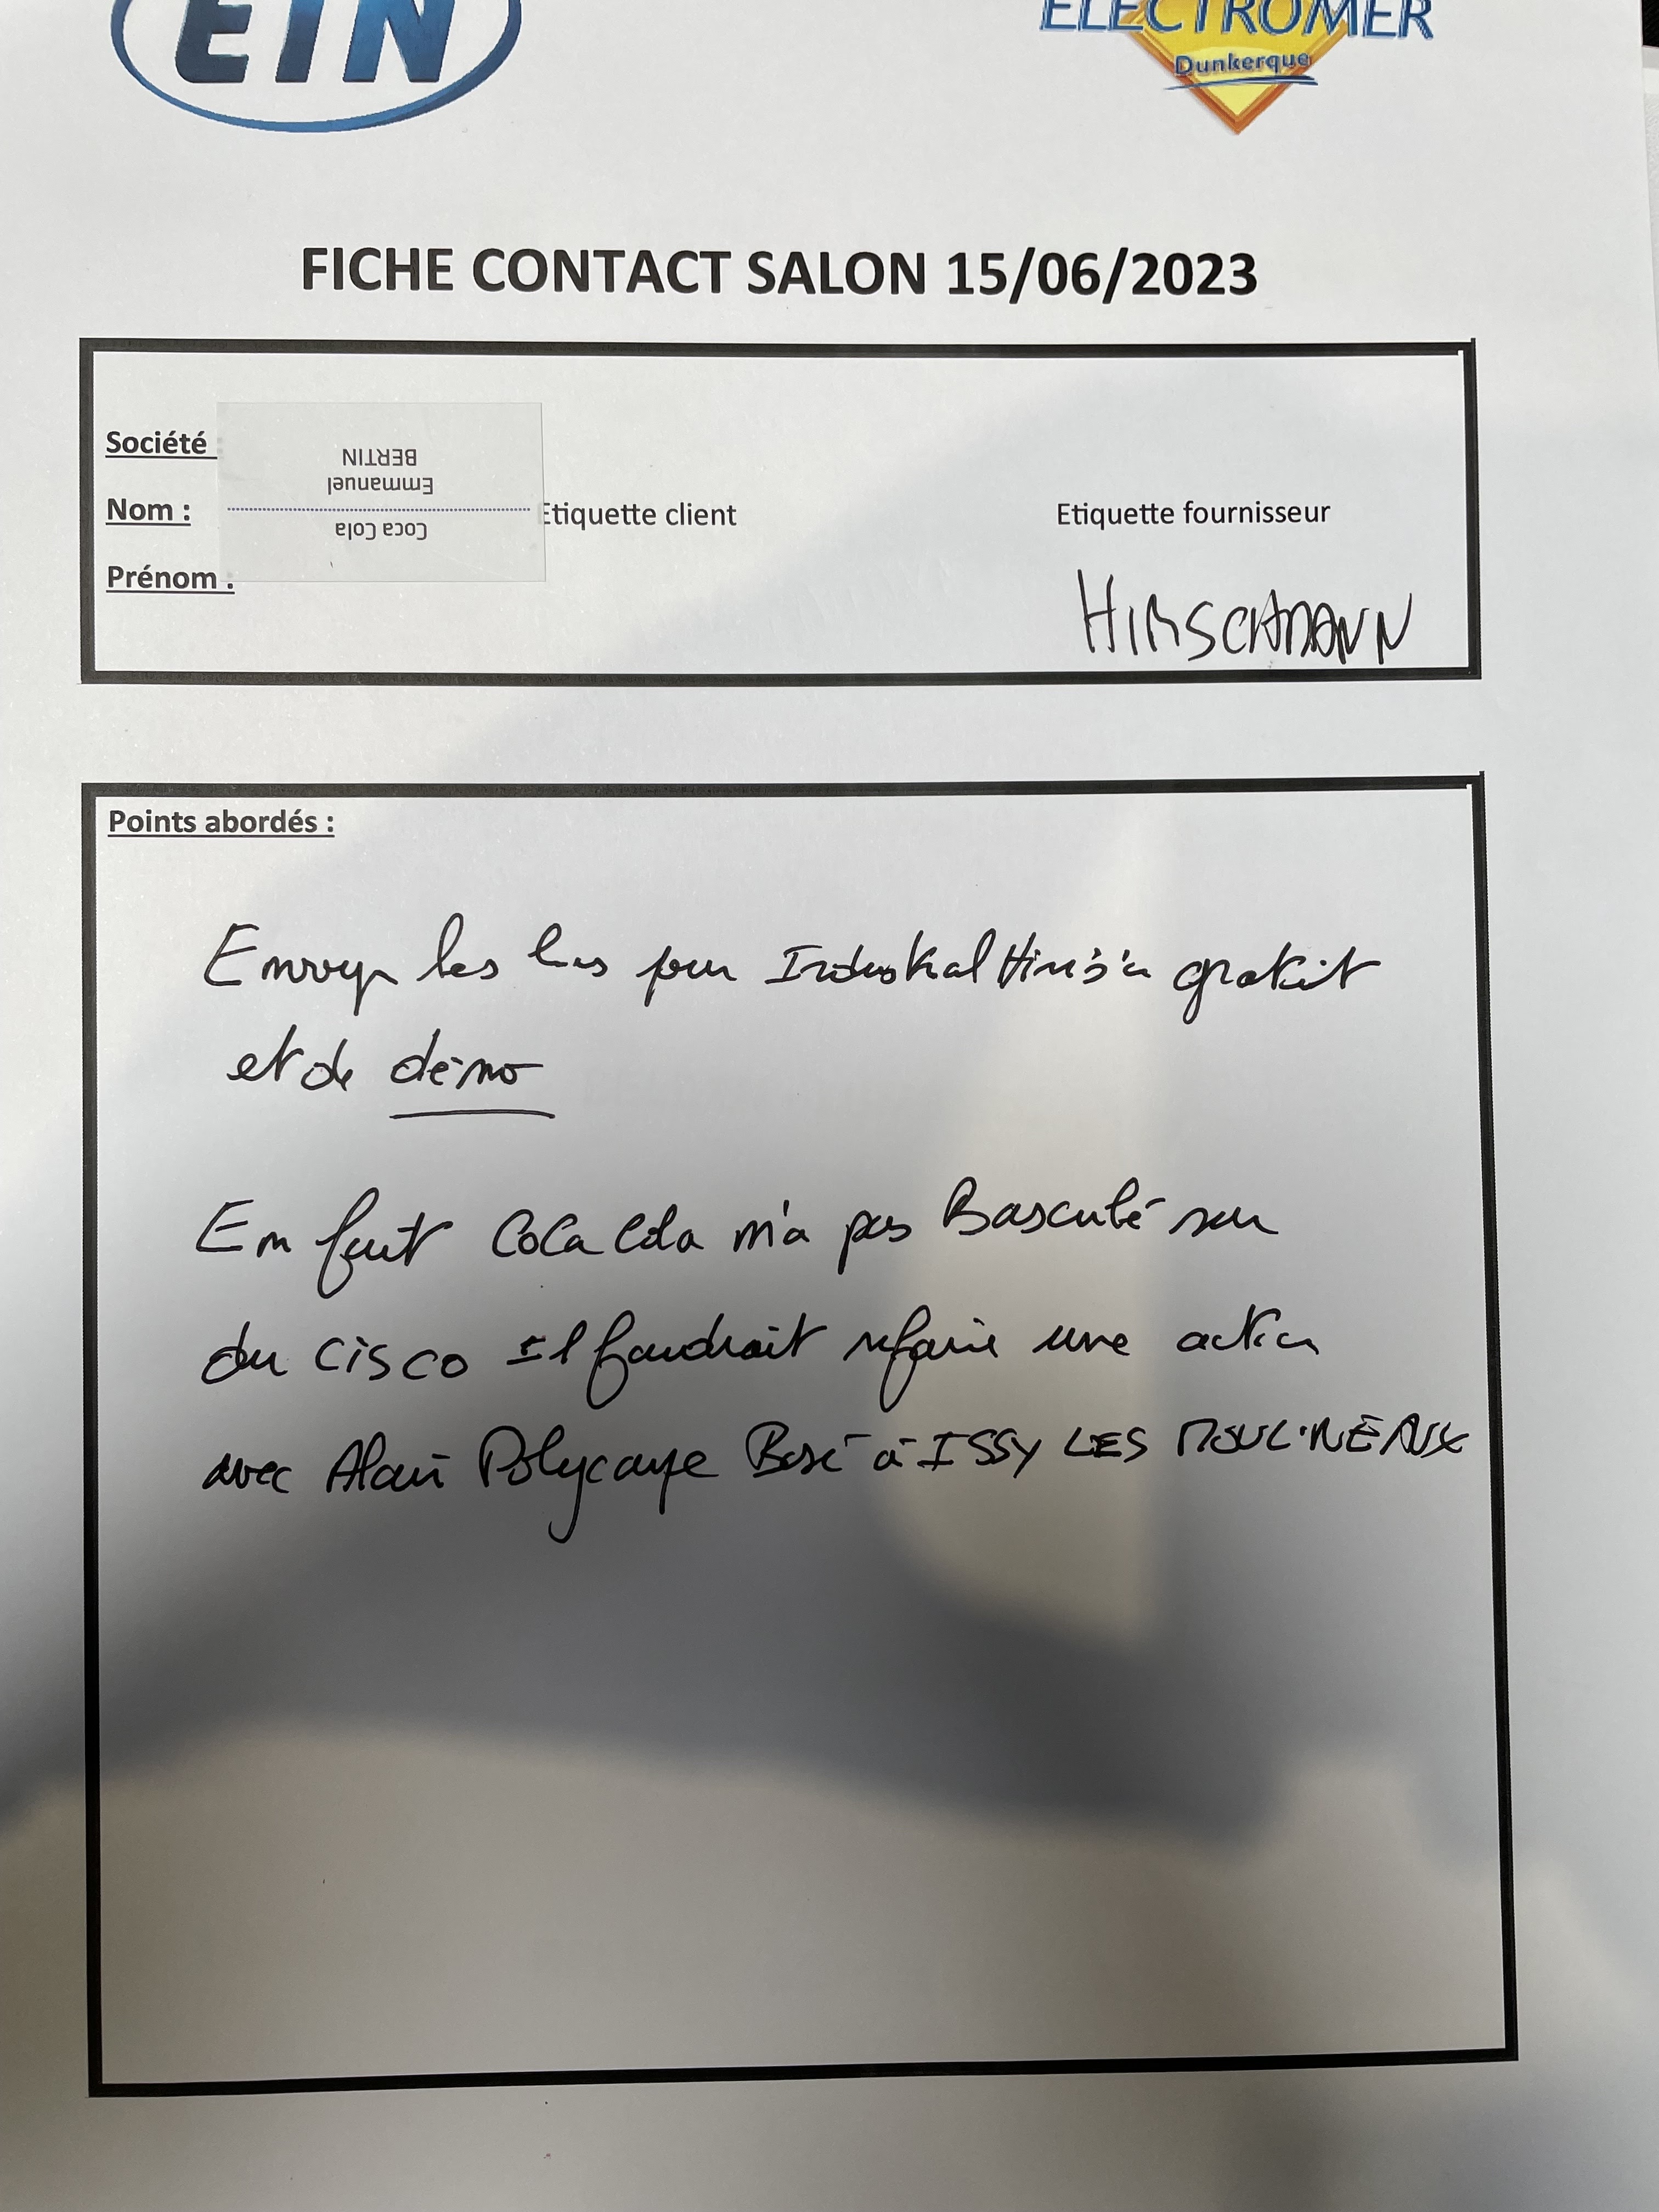 EIN
ELECTROMER
Dunkerque
FICHE CONTACT SALON 15/06/2023
Société
Nom :
Prénom :
Emmanuel
BERTIN
Coca Cola
Etiquette client
Etiquette fournisseur
HIRSCHMANN
Points abordés :
Envoyer les liens pour Industrial gratuit
et de démo
En fait Coca Cola n'a pas Basculé sur
du CISCO Il faudrait refaire une action
avec Alain Polycarpe Basé à ISSY LES MOULINEAUX